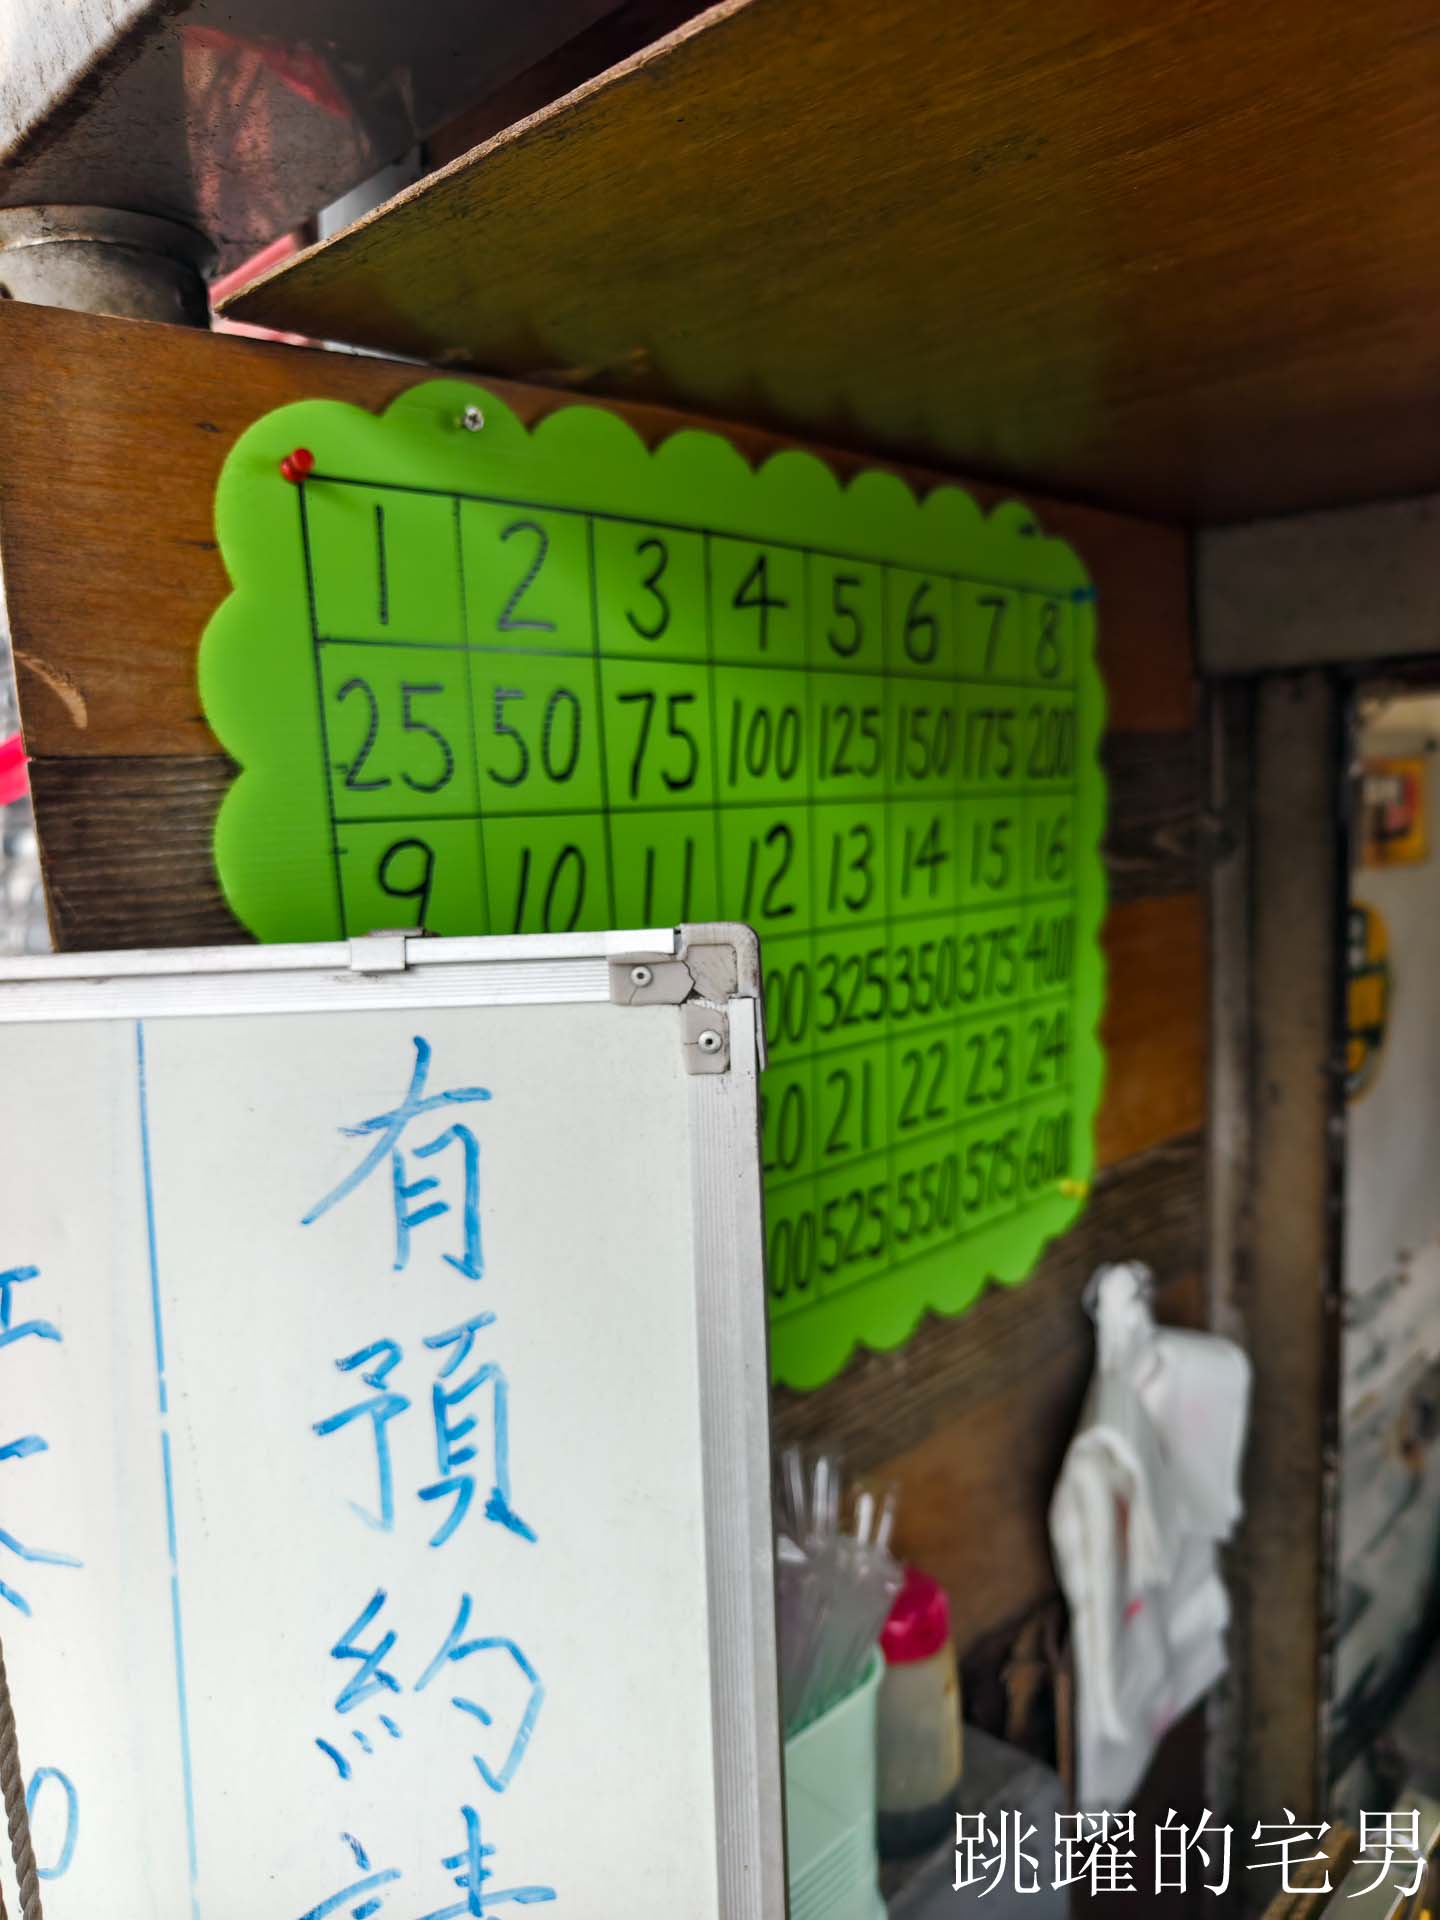 1 2 3 4 5 6 7 8
25 50 75 100 125 150 175 200
9 10 11 12 13 14 15 16
00 325 350 375 400
20 21 22 23 24
00 525 550 575 600
有預約請
跳躍的宅男